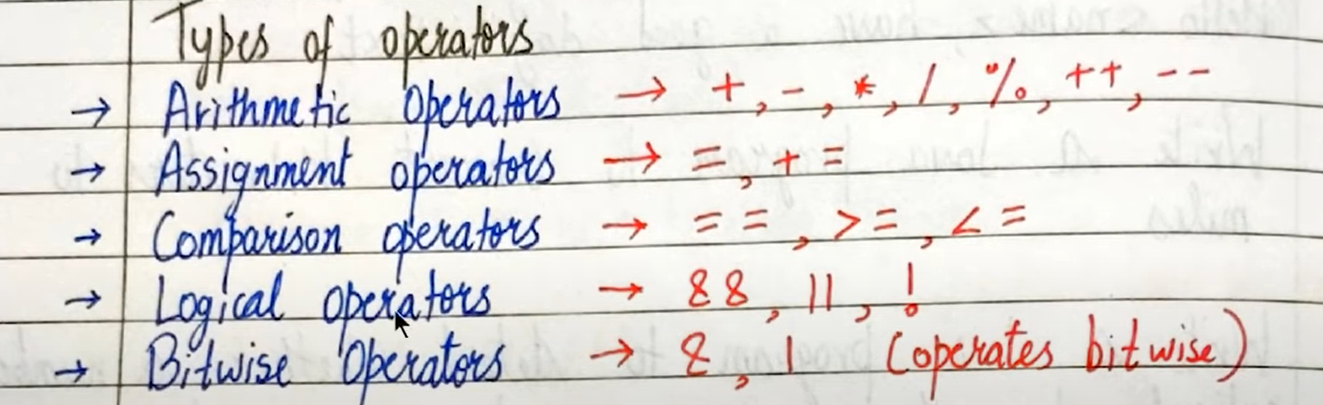 Types of operators
→ Arithmetic Operators → +, -, *, /, %, ++, --
→ Assignment operators → =, +=
→ Comparison operators → ==, >=, <=
→ Logical operators → &&, ||, !
→ Bitwise Operators → &, | (operates bitwise)